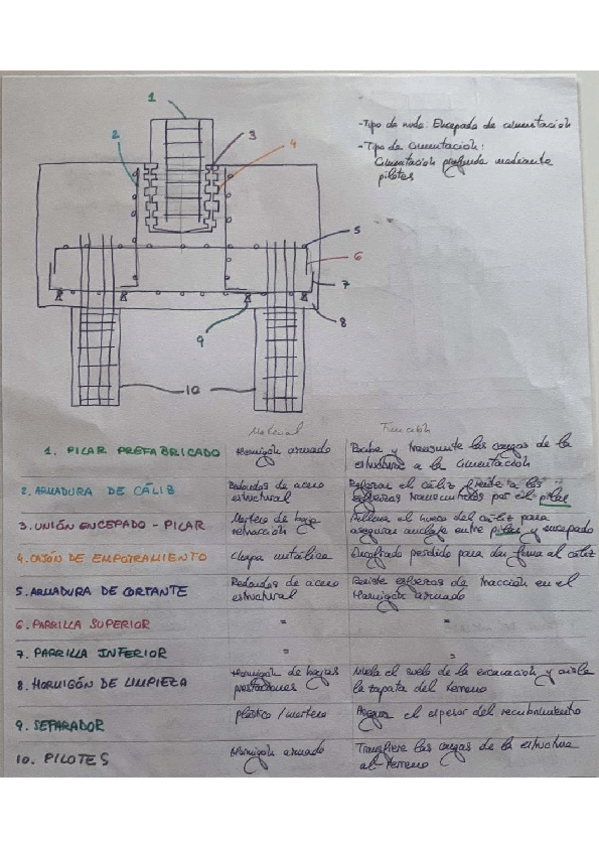 - Tipo de nudo: Encepado de cimentación
- Tipo de cimentación:
Cimentación profunda mediante
pilotes
1
2
3
4
5
6
7
8
9
10
Material
Función
1. PILAR PREFABRICADO
Hormigón armado
Recibe y transmite las cargas de la
estructura a la cimentación
2. ARMADURA DE CÁLIB
Redondos de acero
estructural
Reforzar el cáliz frente a los
esfuerzos transmitidos por el pilar
3. UNIÓN ENCEPADO - PILAR
Mortero de baja
retracción
Rellena el hueco del cáliz para
asegurar anclaje entre pilar y encepado
4. CAJÓN DE EMPOTRAMIENTO
Chapa metálica
Encofrado perdido para dar forma al cáliz
5. ARMADURA DE CORTANTE
Redondos de acero
estructural
Resiste esfuerzos de tracción en el
Hormigón armado
6. PARRILLA SUPERIOR
"
"
7. PARRILLA INFERIOR
"
"
8. HORMIGÓN DE LIMPIEZA
Hormigón de bajas
prestaciones
Nivela el suelo de la excavación y aisla
la zapata del terreno
9. SEPARADOR
plástico / mortero
Asegura el espesor del recubrimiento
10. PILOTES
Hormigón armado
Transfiere las cargas de la estructura
al terreno